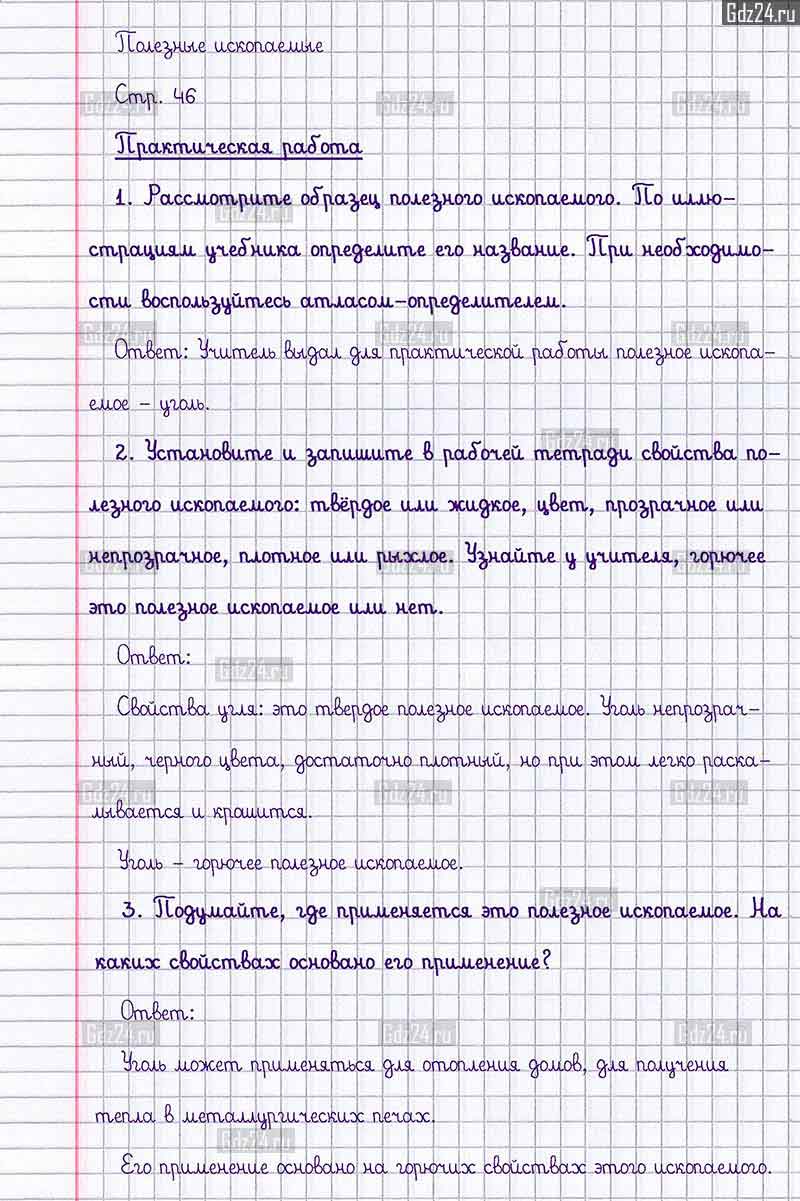 Gdz24.ru
Полезные ископаемые
Стр. 46
Практическая работа
1. Рассмотрите образец полезного ископаемого. По иллю-
страциям учебника определите его название. При необходимо-
сти воспользуйтесь атласом-определителем.
Ответ: Учитель выдал для практической работы полезное ископа-
емое - уголь.
2. Установите и запишите в рабочей тетради свойства по-
лезного ископаемого: твёрдое или жидкое, цвет, прозрачное или
непрозрачное, плотное или рыхлое. Узнайте у учителя, горючее
это полезное ископаемое или нет.
Ответ:
Свойства угля: это твердое полезное ископаемое. Уголь непрозрач-
ный, черного цвета, достаточно плотный, но при этом легко раска-
лывается и крошится.
Уголь - горючее полезное ископаемое.
3. Подумайте, где применяется это полезное ископаемое. На
каких свойствах основано его применение?
Ответ:
Уголь может применяться для отопления домов, для получения
тепла в металлургических печах.
Его применение основано на горючих свойствах этого ископаемого.